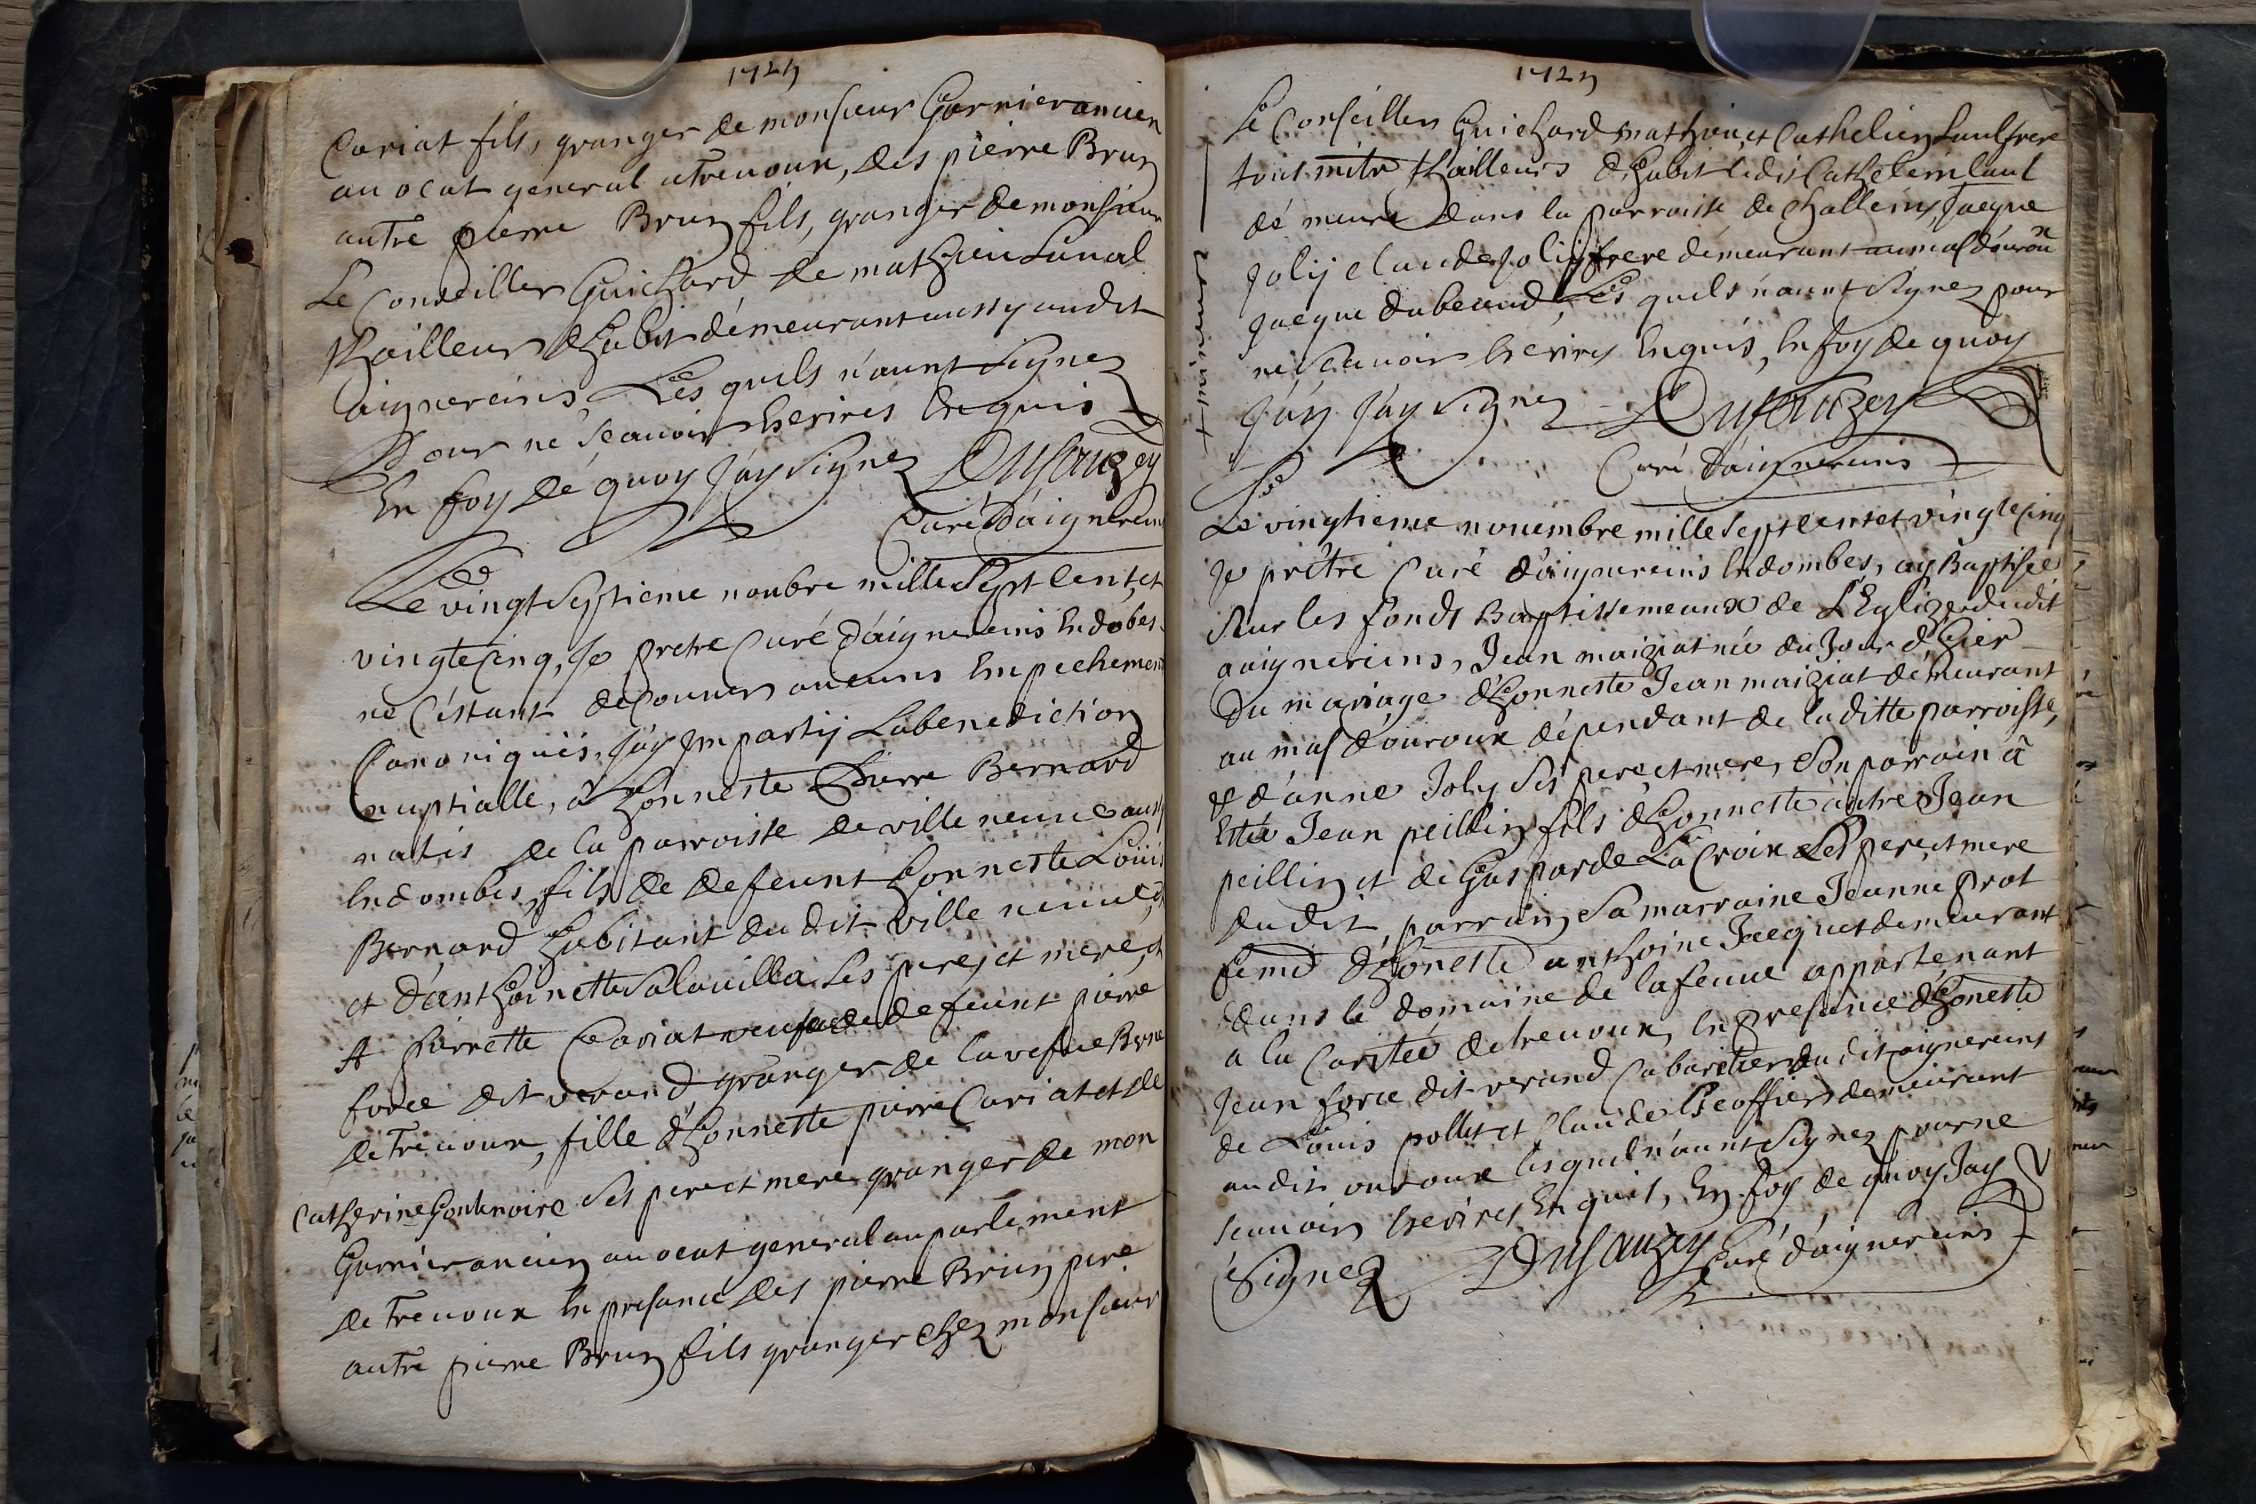 1725
Cariat fils, granger de monsieur Garnier ancien
auocat general atreuoux, des pierre Brun
autre pierre Brun fils, granger de monsieur
Le Conseiller Guichard de mathieu Lunal
thailleur dhabit démeurant aussy audit
aignereins, Lés quels n'aunt Signez
Pour né Scauoir Escrires Enquis
En foy dé quoy Jáy Signez Dusauzey
Curé D'aignereins
Lé vingt Septieme noubre mille Sept Cent, et
vingte Cinq, Je pretre Curé D'aignereins En dobes
ne C'éstant decouuers aucuns Empechement
Canoniqués, J'áy Jmpartij La benediction
nuptialle, á honneste Pierre Bernard
natis de la parroisse de ville neuue aussy
En dombes, fils de defeunt honneste Loüis
Bernard habitant du dit ville neuue, et
et d'anthoinette Salauilla Ses pere, et mere, et
A pierrette Cariat veufue de defeunt pierre
forée dit verand, granger de la vefue Brune
de Treuoux, fille d'honneste pierre Cariat et de
Catherine Gontenoire Ses pere et mere granger de mon
Garnier ancien auocat general au parlement
de Treuoux En presance des pierre Brun pere
autre pierre Brun fils granger chez monsieur
1725
Le Conseiller Guichard mathieu, et Cathelin Laul frere
tous mitre thailleurs d'habit ledit Cathelin laul
dé meure dans la parroisse de Challeins, Jacque
Jolij claude Jolij frere démeurant au mas d'ouroux
Jacque dubeaud, Lés quels n'aunt Signez pour
ne Scauoir Escrires Enquis, En foy de quoy
J'áy J'áy Signez Dusauzey
Curé D'aignereins
+ mineurs
Le vingtieme nouembre mille Sept Cent et vingte Cinq
Je prêtre Curé d'aignereins En dombes, ay Baptisée
Sur les fonds Baptissemeaux de L'Eglize dudit
aignereins, Jean maiziat née du Jour d'hier
Du mariage d'honneste Jean maiziat démeurant
au mas d'ouroux dépendant de la ditte parroisse,
et d'anne Joly Sés pere, et mere, Son parrain â
Estée Jean peillin fils d'honneste autre Jean
peillin et de Gasparde La Croix Ses pere, et mere
du dit, parrain, Sa marraine Jeanne prot
femé d'honeste anthoine Jacquet demeurant
dans le domaine de lafeuue appartenant
a la Caritée de treuoux, En presance d'honeste
Jean forie dit verand Cabartier du dit aignereins
de Loüis pollet et Claude Geoffier demeurant
audit ouroux les quels n'aunt Signez pour ne
scauoir Escrires Enquis, En foy de quoy Jay
Signez Dusauzey Curé d'aignereins